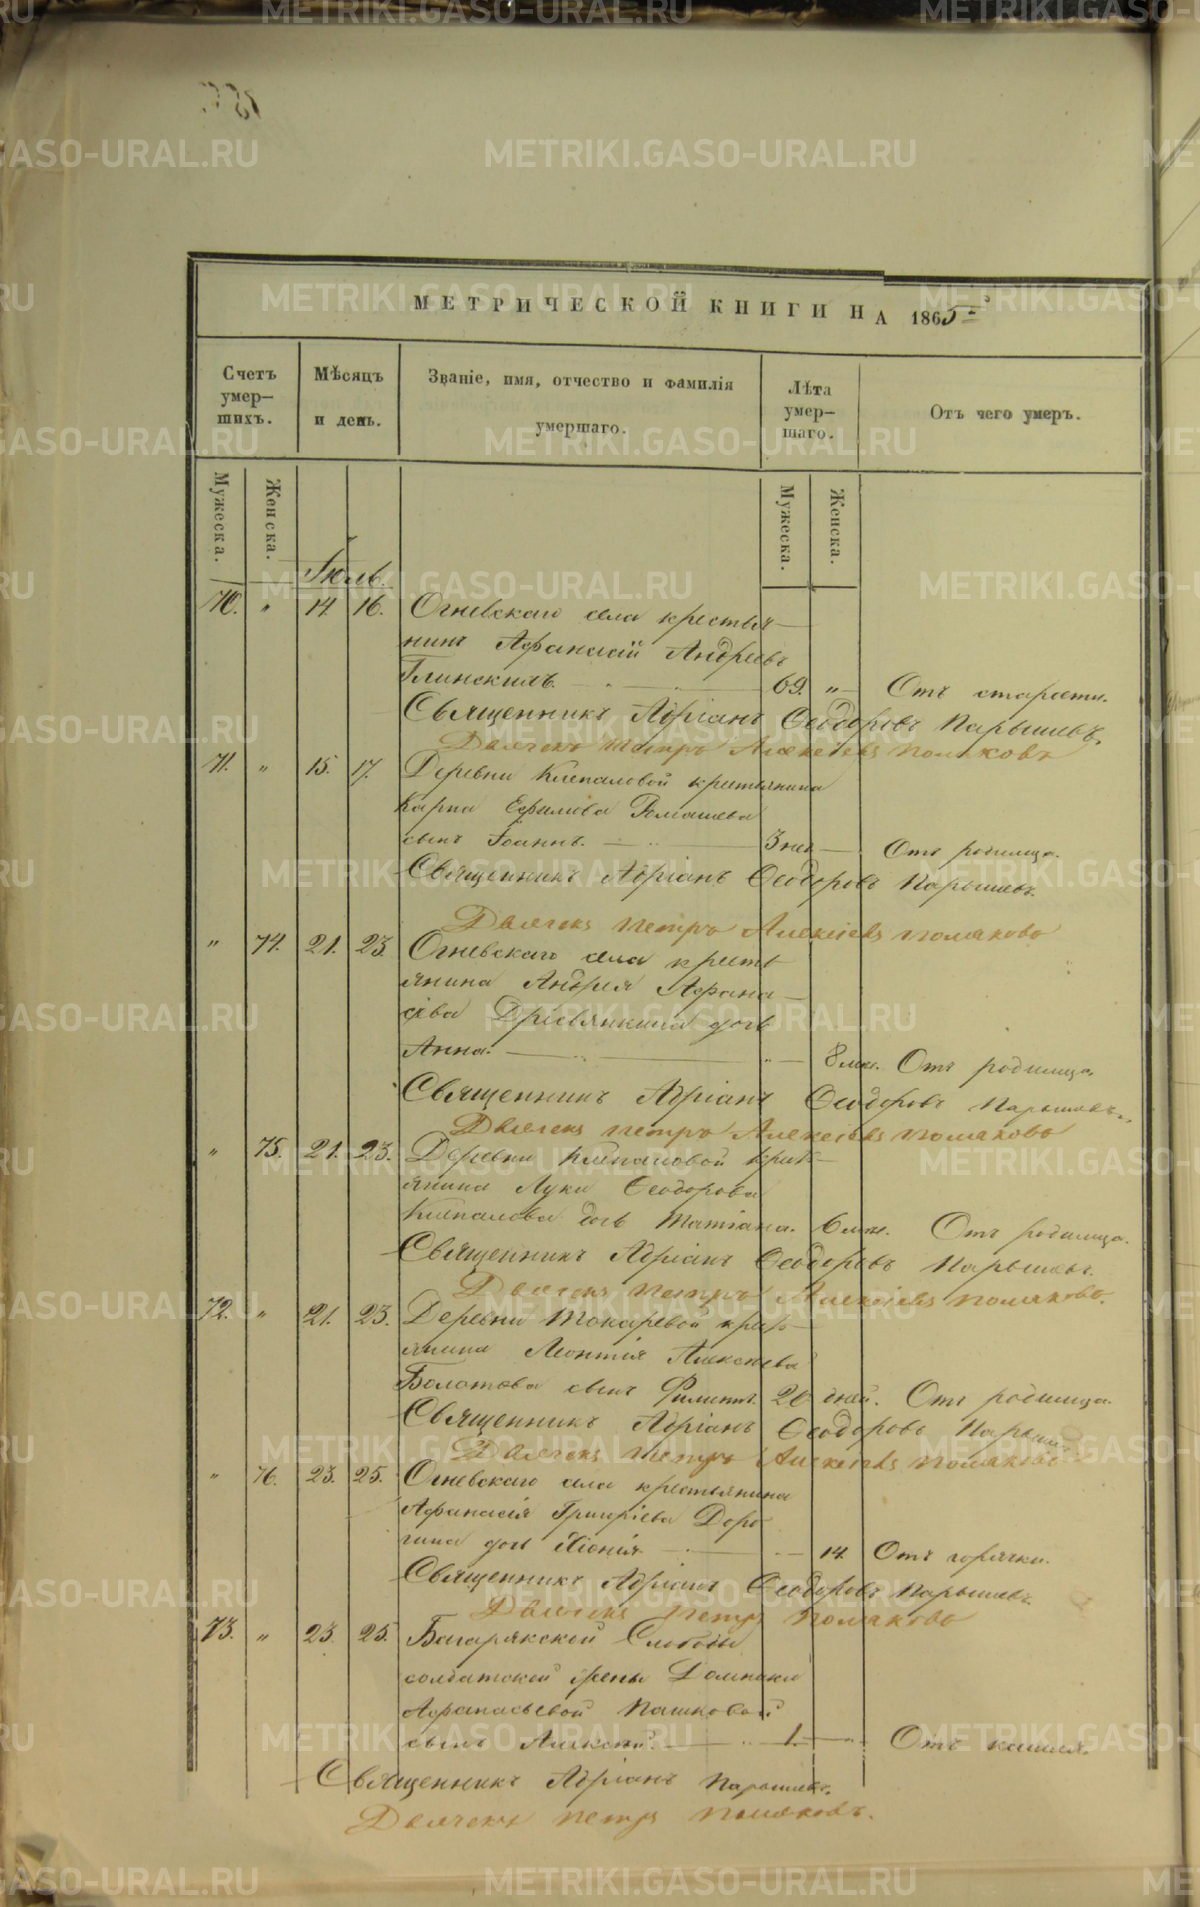 МЕТРИЧЕСКОЙ КНИГИ НА 1865
Счетъ умер-шихъ.
Мѣсяцъ и день.
Званіе, имя, отчество и фамилія умершаго.
Лѣта умер-шаго.
Отъ чего умеръ.
Мужеска.
Женска.
Мужеска.
Женска.
Іюль.
70. " 14 16. Огневскаго села крестья-
нинъ Афанасій Андреевъ
Глинскихъ. 69. " Отъ старости.
Священникъ Адріанъ Ѳеодоровъ Парышевъ.
Дьячекъ Петръ Алексіевъ Поляковъ
71. " 15. 17. Деревни Клепаловой крестьянина
Карпа Ефимова Ромашева
сынъ Іоаннъ. 3 нед. Отъ родимца.
Священникъ Адріанъ Ѳеодоровъ Парышевъ.
Дьячекъ Петръ Алексіевъ Поляковъ
" 74. 21. 23. Огневскаго села кресть
янина Андрея Афана-
сіева Дресвянкина дочь
Анна. 8 мѣс. Отъ родимца.
Священникъ Адріанъ Ѳеодоровъ Парышевъ.
Дьячекъ Петръ Алексіевъ Поляковъ
" 75. 21. 23. Деревни Клепаловой крест-
янина Луки Ѳеодорова
Клепалова дочь Татіана. 6 мѣс. Отъ родимца.
Священникъ Адріанъ Ѳеодоровъ Парышевъ.
Дьячекъ Петръ Алексіевъ Поляковъ.
72. " 21. 23. Деревни Токаревой крест-
янина Леонтія Алексѣева
Болотова сынъ Филиппъ. 20 дней. Отъ родимца.
Священникъ Адріанъ Ѳеодоровъ Парышевъ
Дьячекъ Петръ Алексіевъ Поляковъ
" 76. 23. 25. Огневскаго села крестьянина
Афанасія Григоріева Доро
гина дочь Хіонія 14 Отъ горячки.
Священникъ Адріанъ Ѳеодоровъ Парышевъ.
Дьячекъ Петръ Поляковъ
73. " 23. 25. Багарякской Слободы
солдатской жены Домники
Афанасьевой Пашковой
сынъ Алексій. 1. " Отъ кашля.
Священникъ Адріанъ Парышевъ.
Дьячекъ Петръ Поляковъ.
METRIKI.GASO-URAL.RU